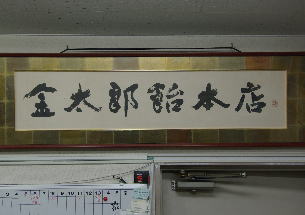 金太郎飴本店